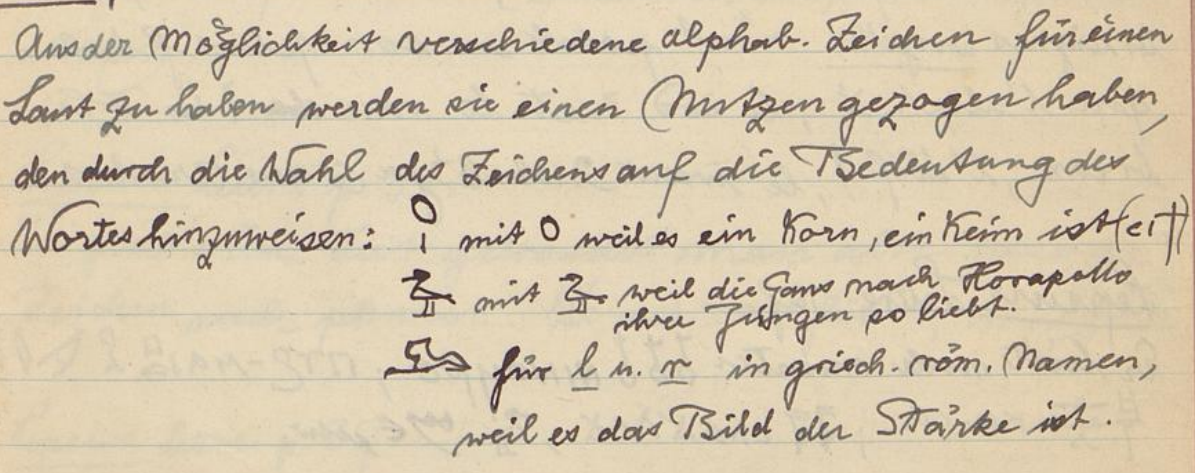 Aus der Möglichkeit verschiedene alphab. Zeichen für einen
Laut zu haben werden sie einen Nutzen gezogen haben,
den durch die Wahl des Zeichens auf die Bedeutung des
Wortes hinzuweisen: mit weil es ein Korn, ein Keim ist
mit weil die Gans nach Horapollo
ihre Jungen so liebt.
für l u. r in griech. röm. Namen,
weil es das Bild der Stärke ist.